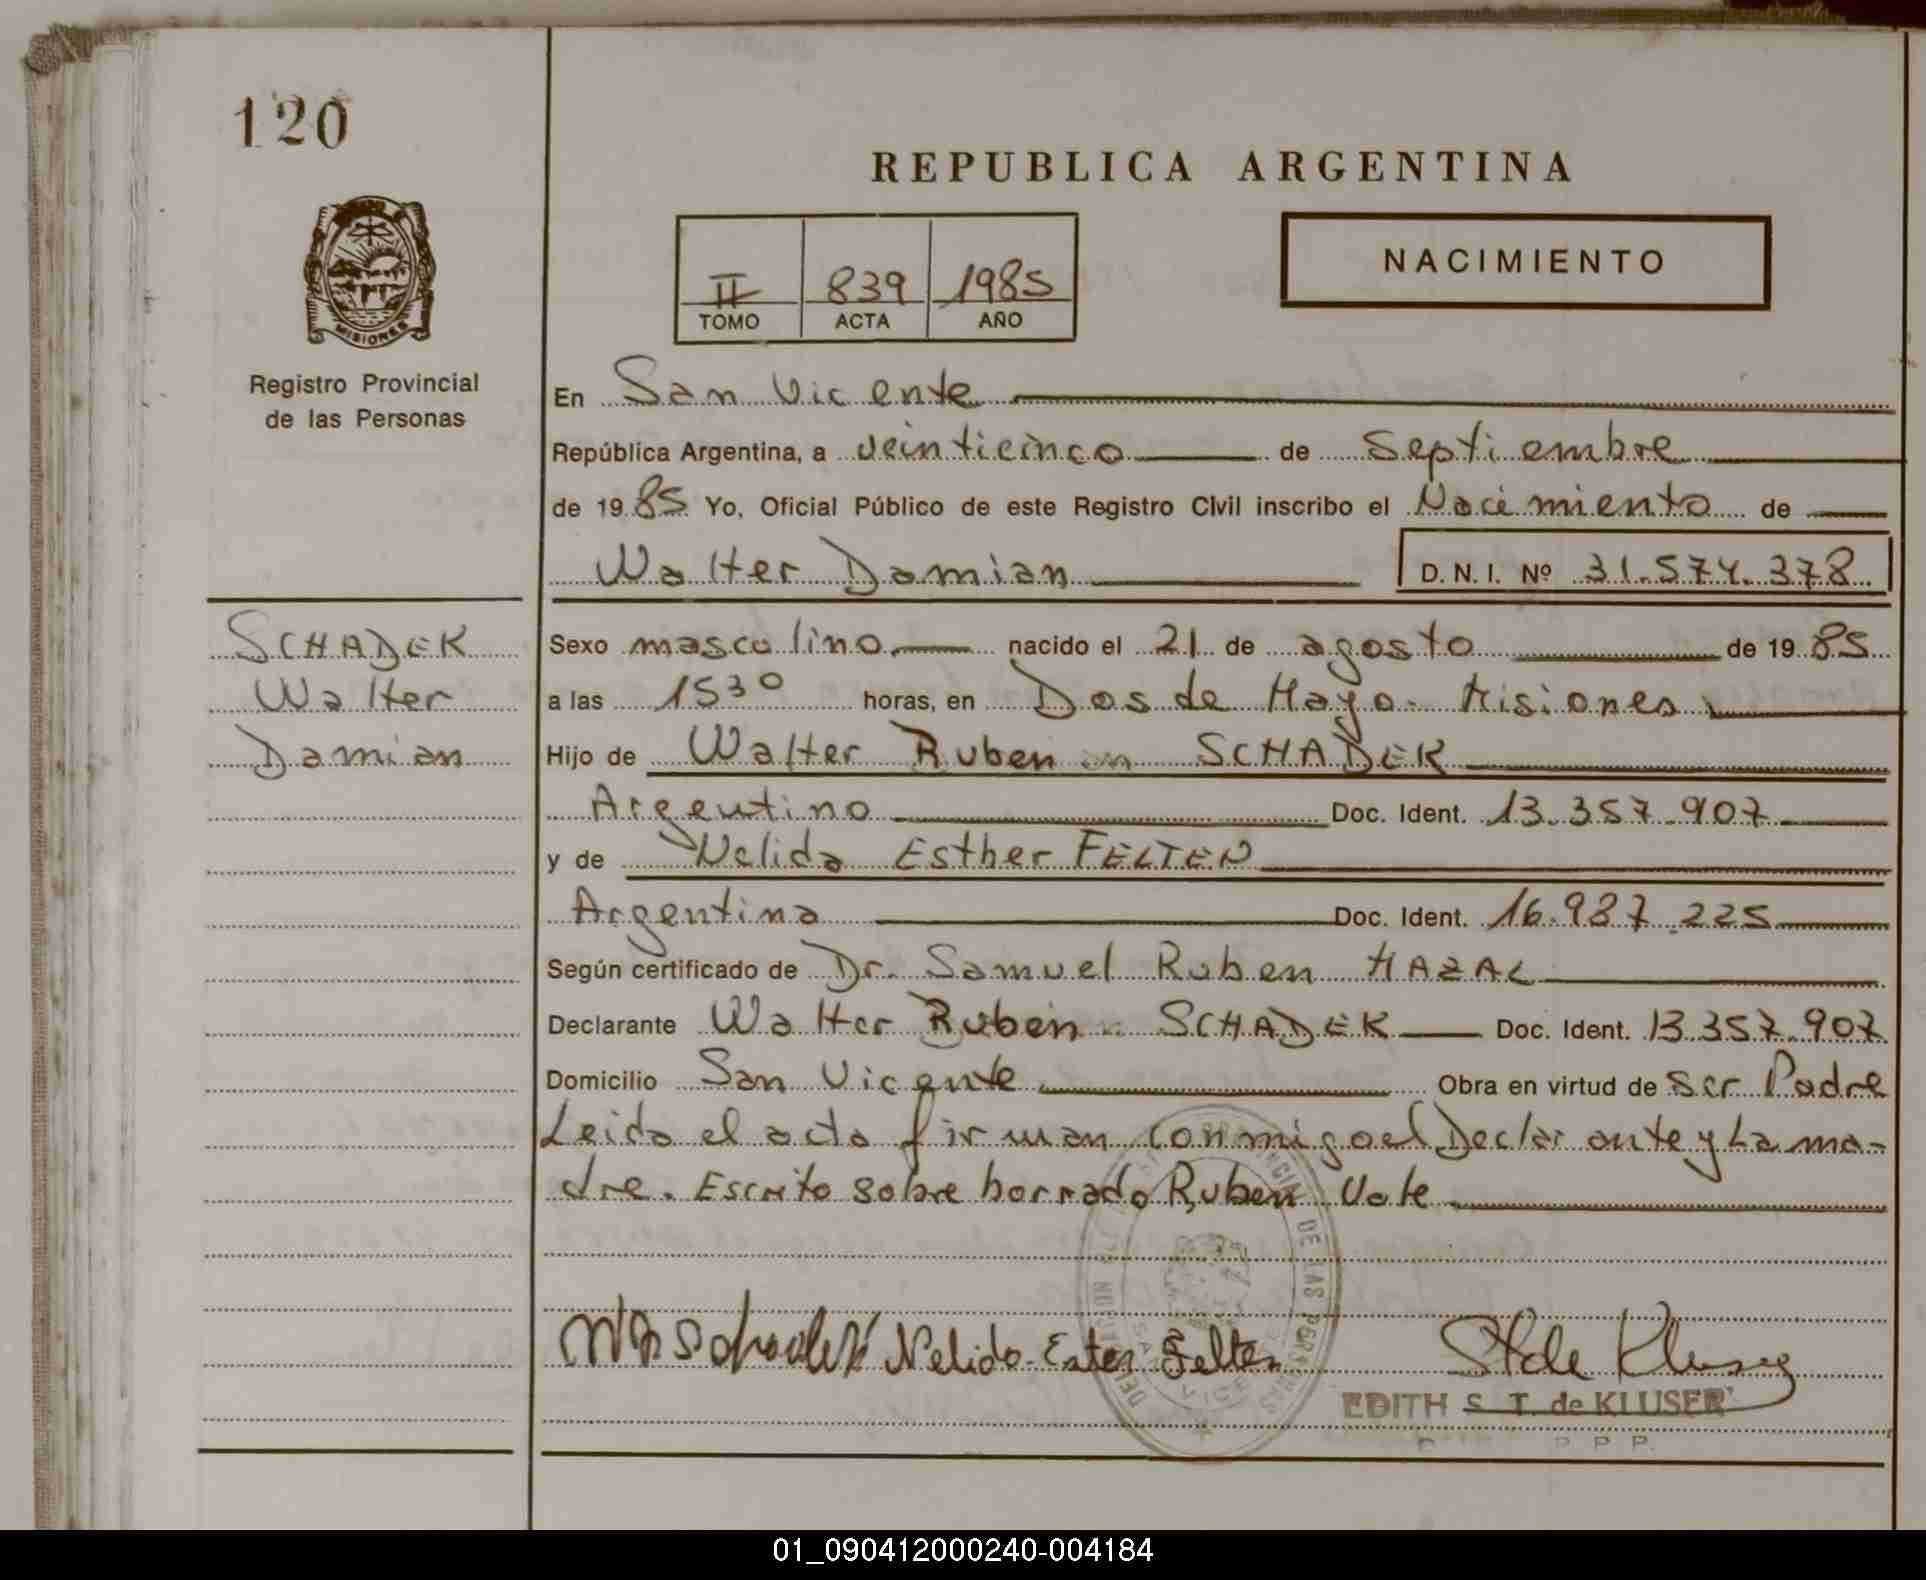 120
REPUBLICA ARGENTINA
NACIMIENTO
II 839 1985
TOMO ACTA AÑO
MISIONES
Registro Provincial
de las Personas
En San Vicente
República Argentina, a veinticinco de Septiembre
de 1985 Yo, Oficial Público de este Registro Civil inscribo el Nacimiento de
Walter Damian D.N.I. Nº 31.574.378
SCHADEK
Walter
Damian
Sexo masculino nacido el 21 de agosto de 1985
a las 15 30 horas, en Dos de Mayo - Misiones
Hijo de Walter Ruben SCHADEK
Argentino Doc. Ident. 13.357.907
y de Nelida Esther FELTEN
Argentina Doc. Ident. 16.987.225
Según certificado de Dr. Samuel Ruben
Declarante Walter Ruben SCHADEK Doc. Ident. 13.357.907
Domicilio San Vicente Obra en virtud de ser Padre
Leida el acta firman conmigo el Declarante y La ma-
dre. Escrito sobre borrado Ruben Vale
Nelida Ester Felten
EDITH S. T. de KLUSER
01_090412000240-004184